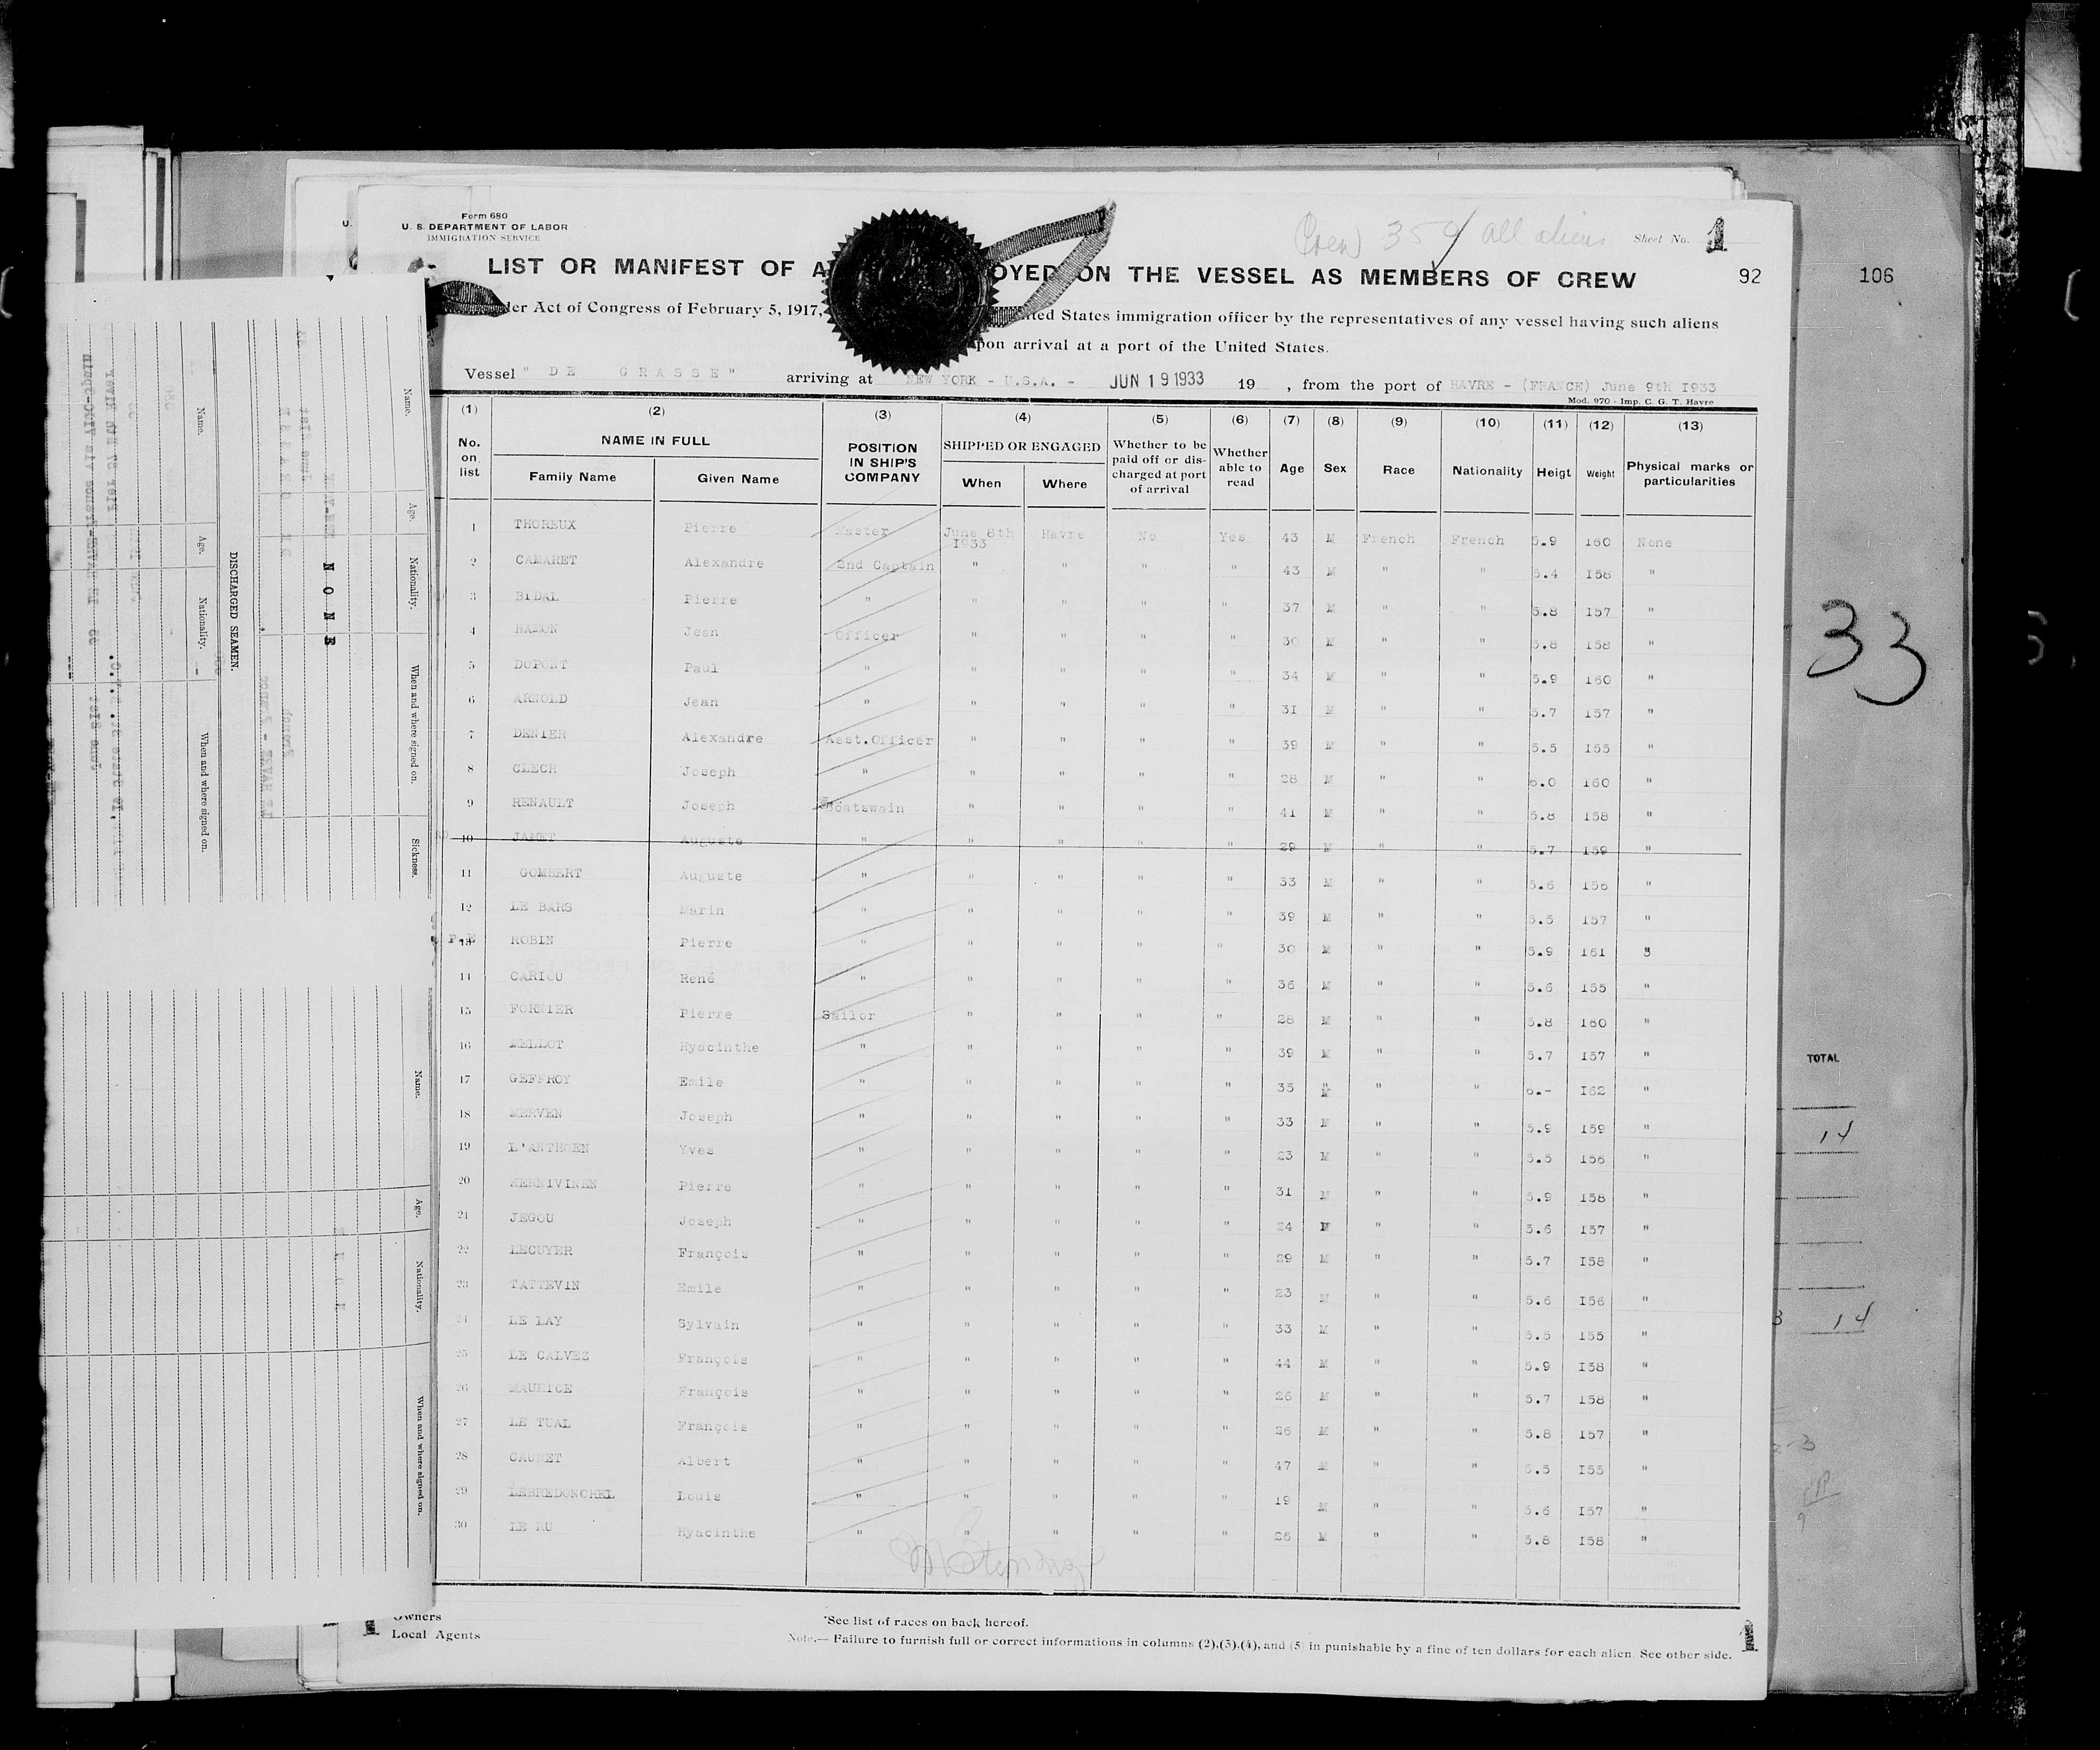 Form 680
U. S. DEPARTMENT OF LABOR
IMMIGRATION SERVICE
Crew 359 all aliens
Sheet No. 1
LIST OR MANIFEST OF A OYED ON THE VESSEL AS MEMBERS OF CREW
92
106
der Act of Congress of February 5, 1917, ted States immigration officer by the representatives of any vessel having such aliens
pon arrival at a port of the United States.
Vessel " DE GRASSE " arriving at NEW YORK - U.S.A. - JUN 19 1933 19 , from the port of HAVRE - (FRANCE) June 9th 1933
Mod. 970 - Imp. C. G. T. Havre
(1) (2) (3) (4) (5) (6) (7) (8) (9) (10) (11) (12) (13)
No. on list NAME IN FULL Family Name Given Name POSITION IN SHIP'S COMPANY SHIPPED OR ENGAGED When Where Whether to be paid off or discharged at port of arrival Whether able to read Age Sex Race Nationality Heigt Weight Physical marks or particularities
1 THOREUX Pierre Master June 8th 1933 Havre No Yes 43 M French French 5.9 160 None
2 CAMARET Alexandre 2nd Captain " " " " 43 M " " 5.4 158 "
3 BIDAL Pierre " " " " " 37 M " " 5.8 157 "
4 HAMON Jean Officer " " " " 30 M " " 5.8 158 "
5 DUPONT Paul " " " " " 34 M " " 5.9 160 "
6 ARNOLD Jean " " " " " 31 M " " 5.7 157 "
7 DENIER Alexandre Asst.Officer " " " " 39 M " " 5.5 155 "
8 CLECH Joseph " " " " " 28 M " " 6.0 160 "
9 RENAULT Joseph Boatswain " " " " 41 M " " 5.8 158 "
10 JAMET Auguste " " " " " 29 M " " 5.7 159 "
11 GOMBERT Auguste " " " " " 33 M " " 5.6 156 "
12 LE BARS Marin " " " " " 39 M " " 5.5 157 "
13 ROBIN Pierre " " " " " 30 M " " 5.9 161 "
14 CARIOU René " " " " " 36 M " " 5.6 155 "
15 FORNIER Pierre Sailor " " " " 28 M " " 5.8 160 "
16 MELLOT Hyacinthe " " " " " 39 M " " 5.7 157 "
17 GEFFROY Emile " " " " " 35 M " " 6.- 162 "
18 MERVEN Joseph " " " " " 33 M " " 5.9 159 "
19 L'ANTHOEN Yves " " " " " 23 M " " 5.5 156 "
20 KERNIVINEN Pierre " " " " " 31 M " " 5.9 158 "
21 JEGOU Joseph " " " " " 24 M " " 5.6 157 "
22 LECUYER François " " " " " 29 M " " 5.7 158 "
23 TATTEVIN Emile " " " " " 23 M " " 5.6 156 "
24 LE LAY Sylvain " " " " " 33 M " " 5.5 155 "
25 LE CALVEZ François " " " " " 44 M " " 5.9 158 "
26 MAURICE François " " " " " 26 M " " 5.7 158 "
27 LE TUAL François " " " " " 26 M " " 5.8 157 "
28 CAURET Albert " " " " " 47 M " " 5.5 155 "
29 LEBREDONCHEL Louis " " " " " 19 M " " 5.6 157 "
30 LE RU Hyacinthe " " " " " 26 M " " 5.8 158 "
Owners
Local Agents
*See list of races on back hereof.
Note.— Failure to furnish full or correct informations in columns (2),(3),(4), and (5) in punishable by a fine of ten dollars for each alien. See other side.
1
1
33
TOTAL
14
3 14
Name. Age. Nationality. When and where signed on. Sickness.
NONE
DISCHARGED SEAMEN.
Name. Age. Nationality. When and where signed on.
Name. Age. Nationality. When and where signed on.